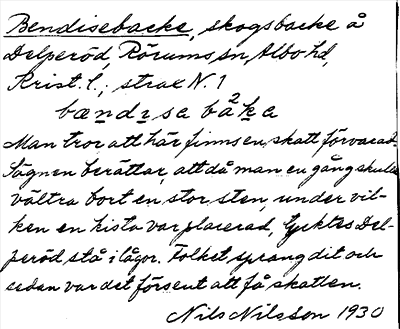 Bendisebacke, skogsbacke å
Delperöd, Rörums sn, Albo hd,
Krist. l.; strax N. 1
bændɪsa bä²ka
Man tror att här finns en skatt förvarad.
Sägnen berättar, att då man en gång skulle
vältra bort en stor sten, under vil-
ken en kista var placerad, tycktes Del-
peröd stå i lågor. Folket sprang dit och
sedan var det försent att få skatten.
Nils Nilsson 1930